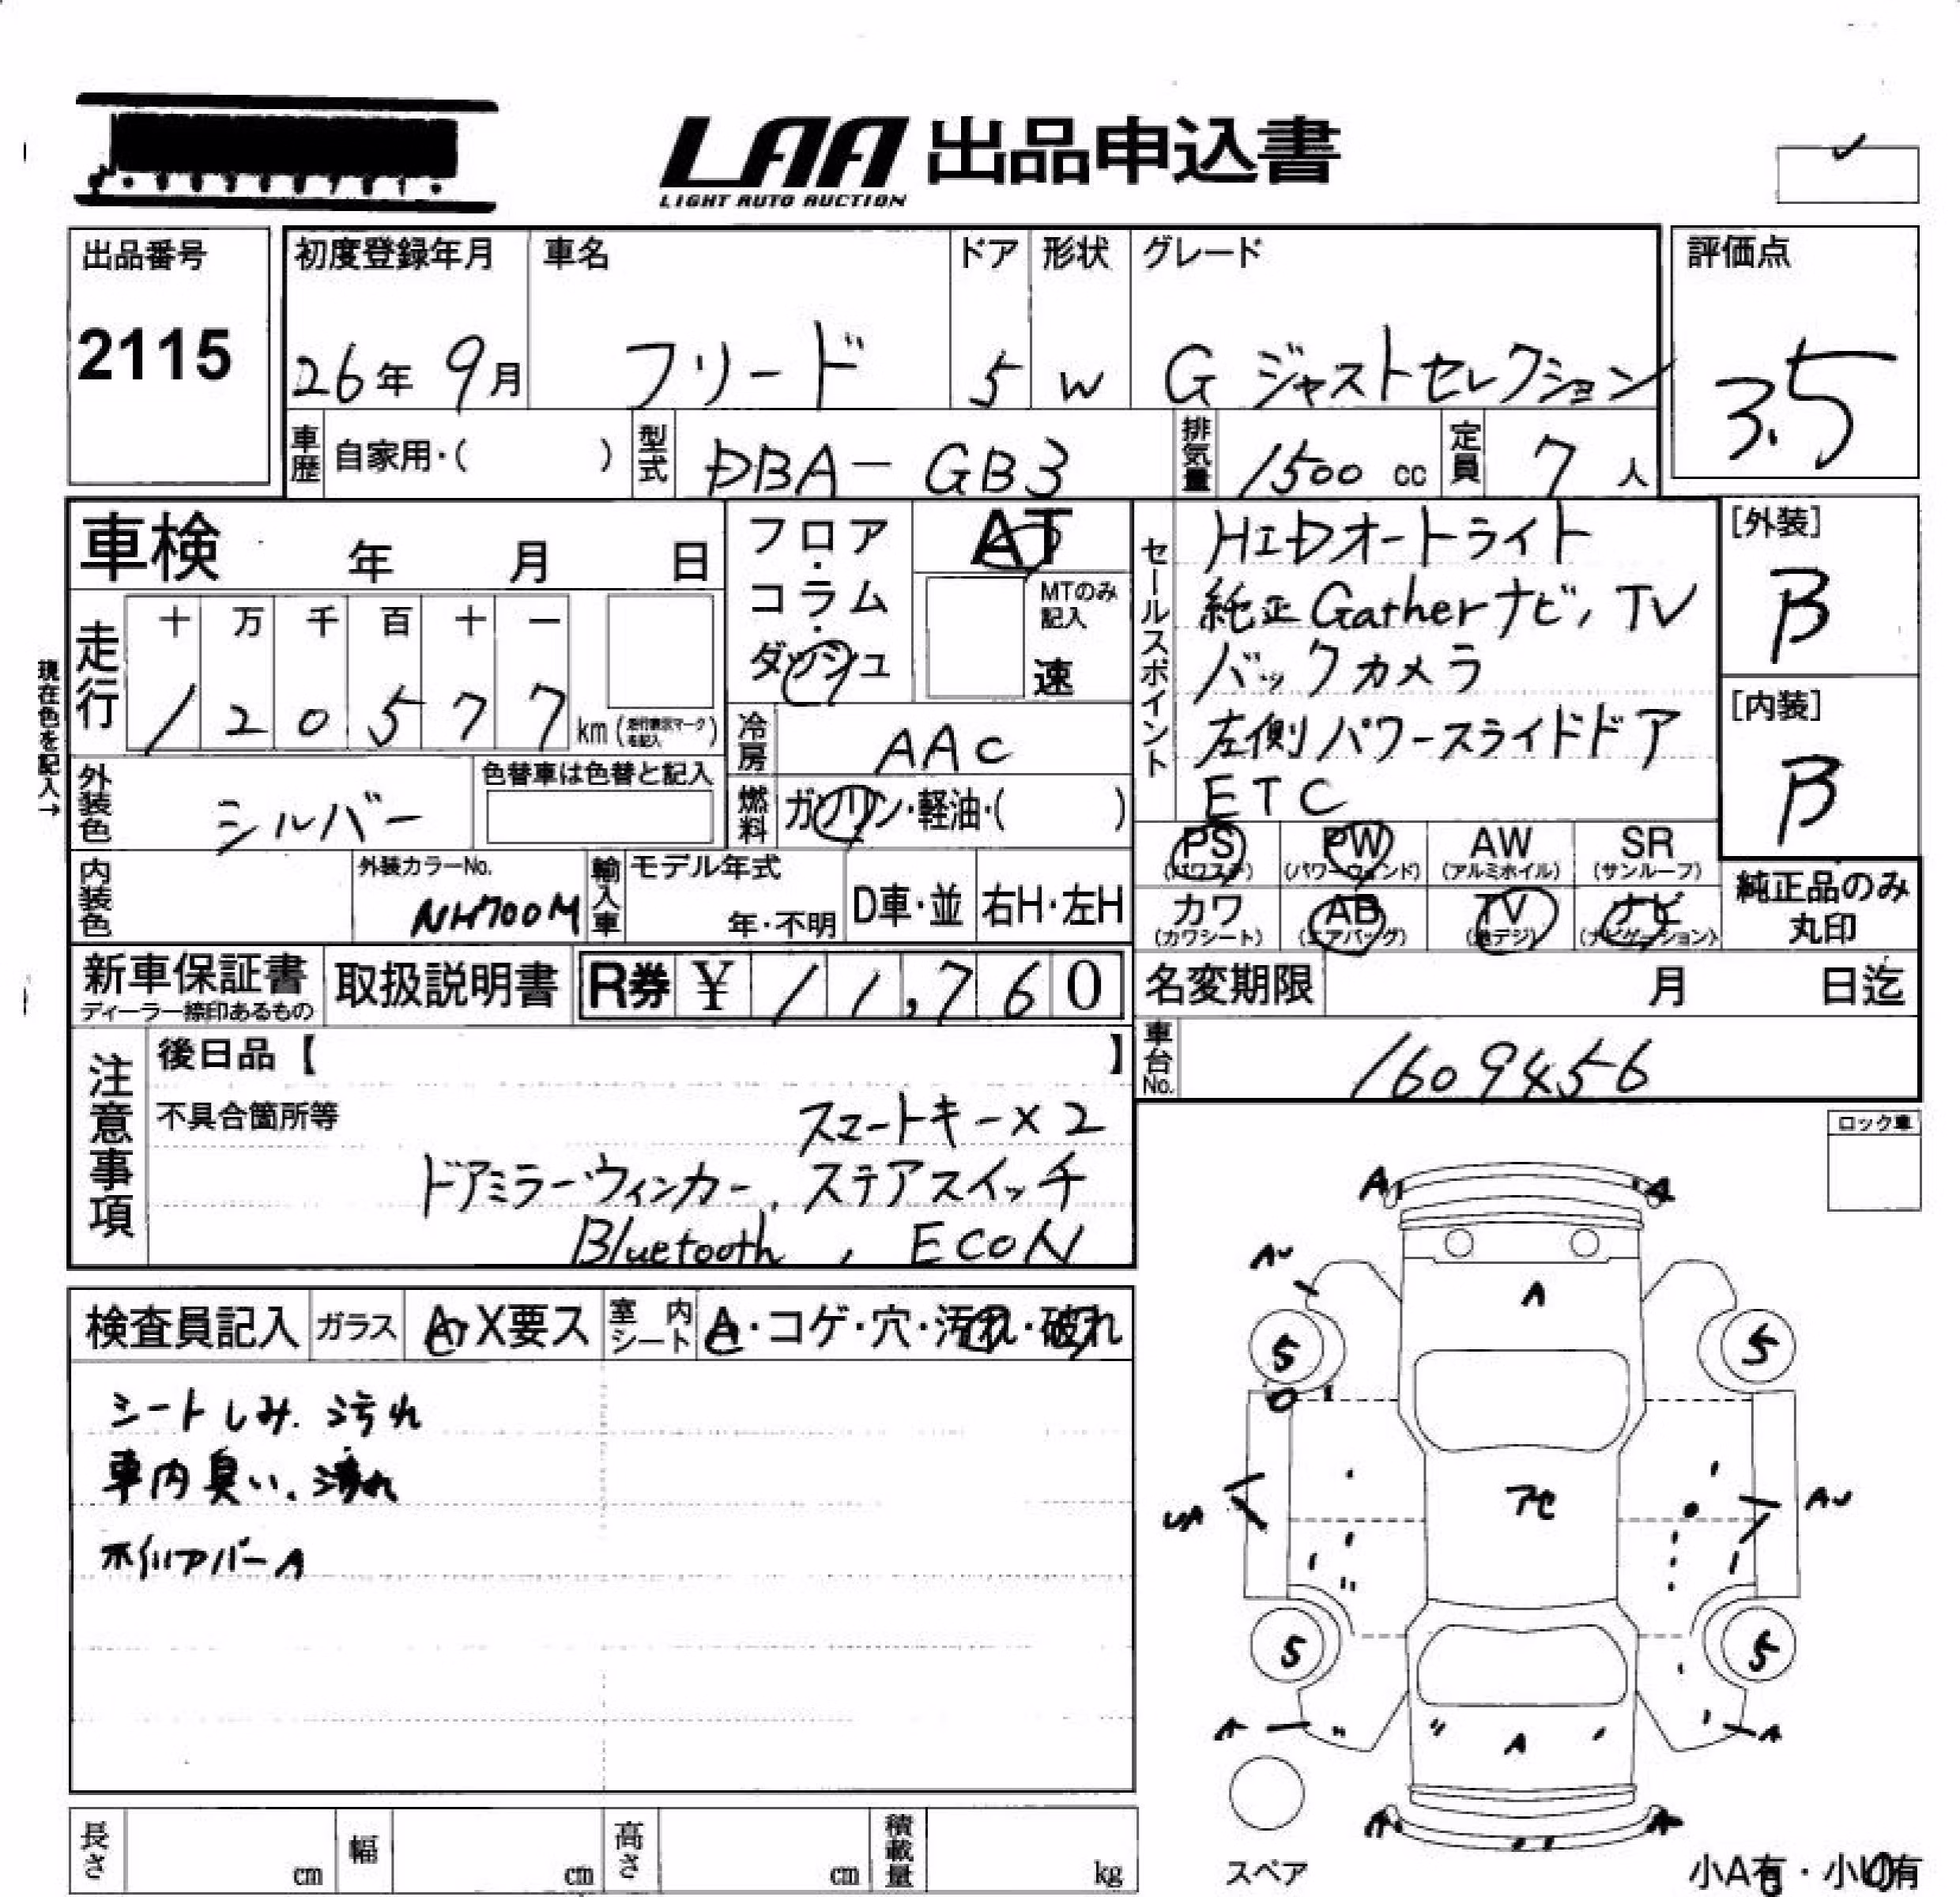 LAA 出品申込書
LIGHT AUTO AUCTION
出品番号
2115
初度登録年月
26年 9月
車名
フリード
ドア
5
形状
W
グレード
G ジャストセレクション
評価点
3.5
車歴
自家用・( )
型式
DBA-GB3
排気量
1500 cc
定員
7 人
車検 年 月 日
フロア・コラム・ダッシュ
AT
MTのみ記入
速
走行
十 万 千 百 十 一
1 2 0 5 7 7 km
現在色を記入→
冷房
AAC
外装色
シルバー
色替車は色替と記入
燃料
ガソリン・軽油・( )
内装色
外装カラーNo.
NH700M
輸入車
モデル年式
年・不明
D車・並
右H・左H
セールスポイント
HIDオートライト
純正Gatherナビ, TV
バックカメラ
左側パワースライドドア
ETC
[外装]
B
[内装]
B
PS (パワステ)
PW (パワーウィンド)
AW (アルミホイル)
SR (サンルーフ)
カワ (カワシート)
AB (エアバッグ)
TV (地デジ)
ナビ (ナビゲーション)
純正品のみ丸印
新車保証書
ディーラー捺印あるもの
取扱説明書
R券 ¥ 11,760
名変期限 月 日迄
車台No.
1609456
注意事項
後日品【 】
不具合箇所等
スマートキー×2
ドアミラーウィンカー, ステアスイッチ
Bluetooth, ECON
ロック車
検査員記入
ガラス
A・X要ス
室内シート
A・コゲ・穴・汚れ・破れ
シートしみ. 汚れ
車内臭い. 汚れ
A A
AU
A
5 5
UA
アセ
AU
5 5
A A A
A A
スペア
小A有・小U有
長さ cm
幅 cm
高さ cm
積載量 kg